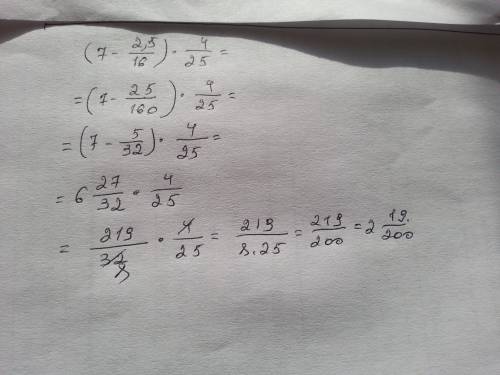 (7 - 2,5/16) · 4/25 =
= (7 - 25/160) · 4/25 =
= (7 - 5/32) · 4/25 =
= 6 27/32 · 4/25
= 219/32 8 · 4/25 = 219/8.25 = 219/200 = 2 19/200